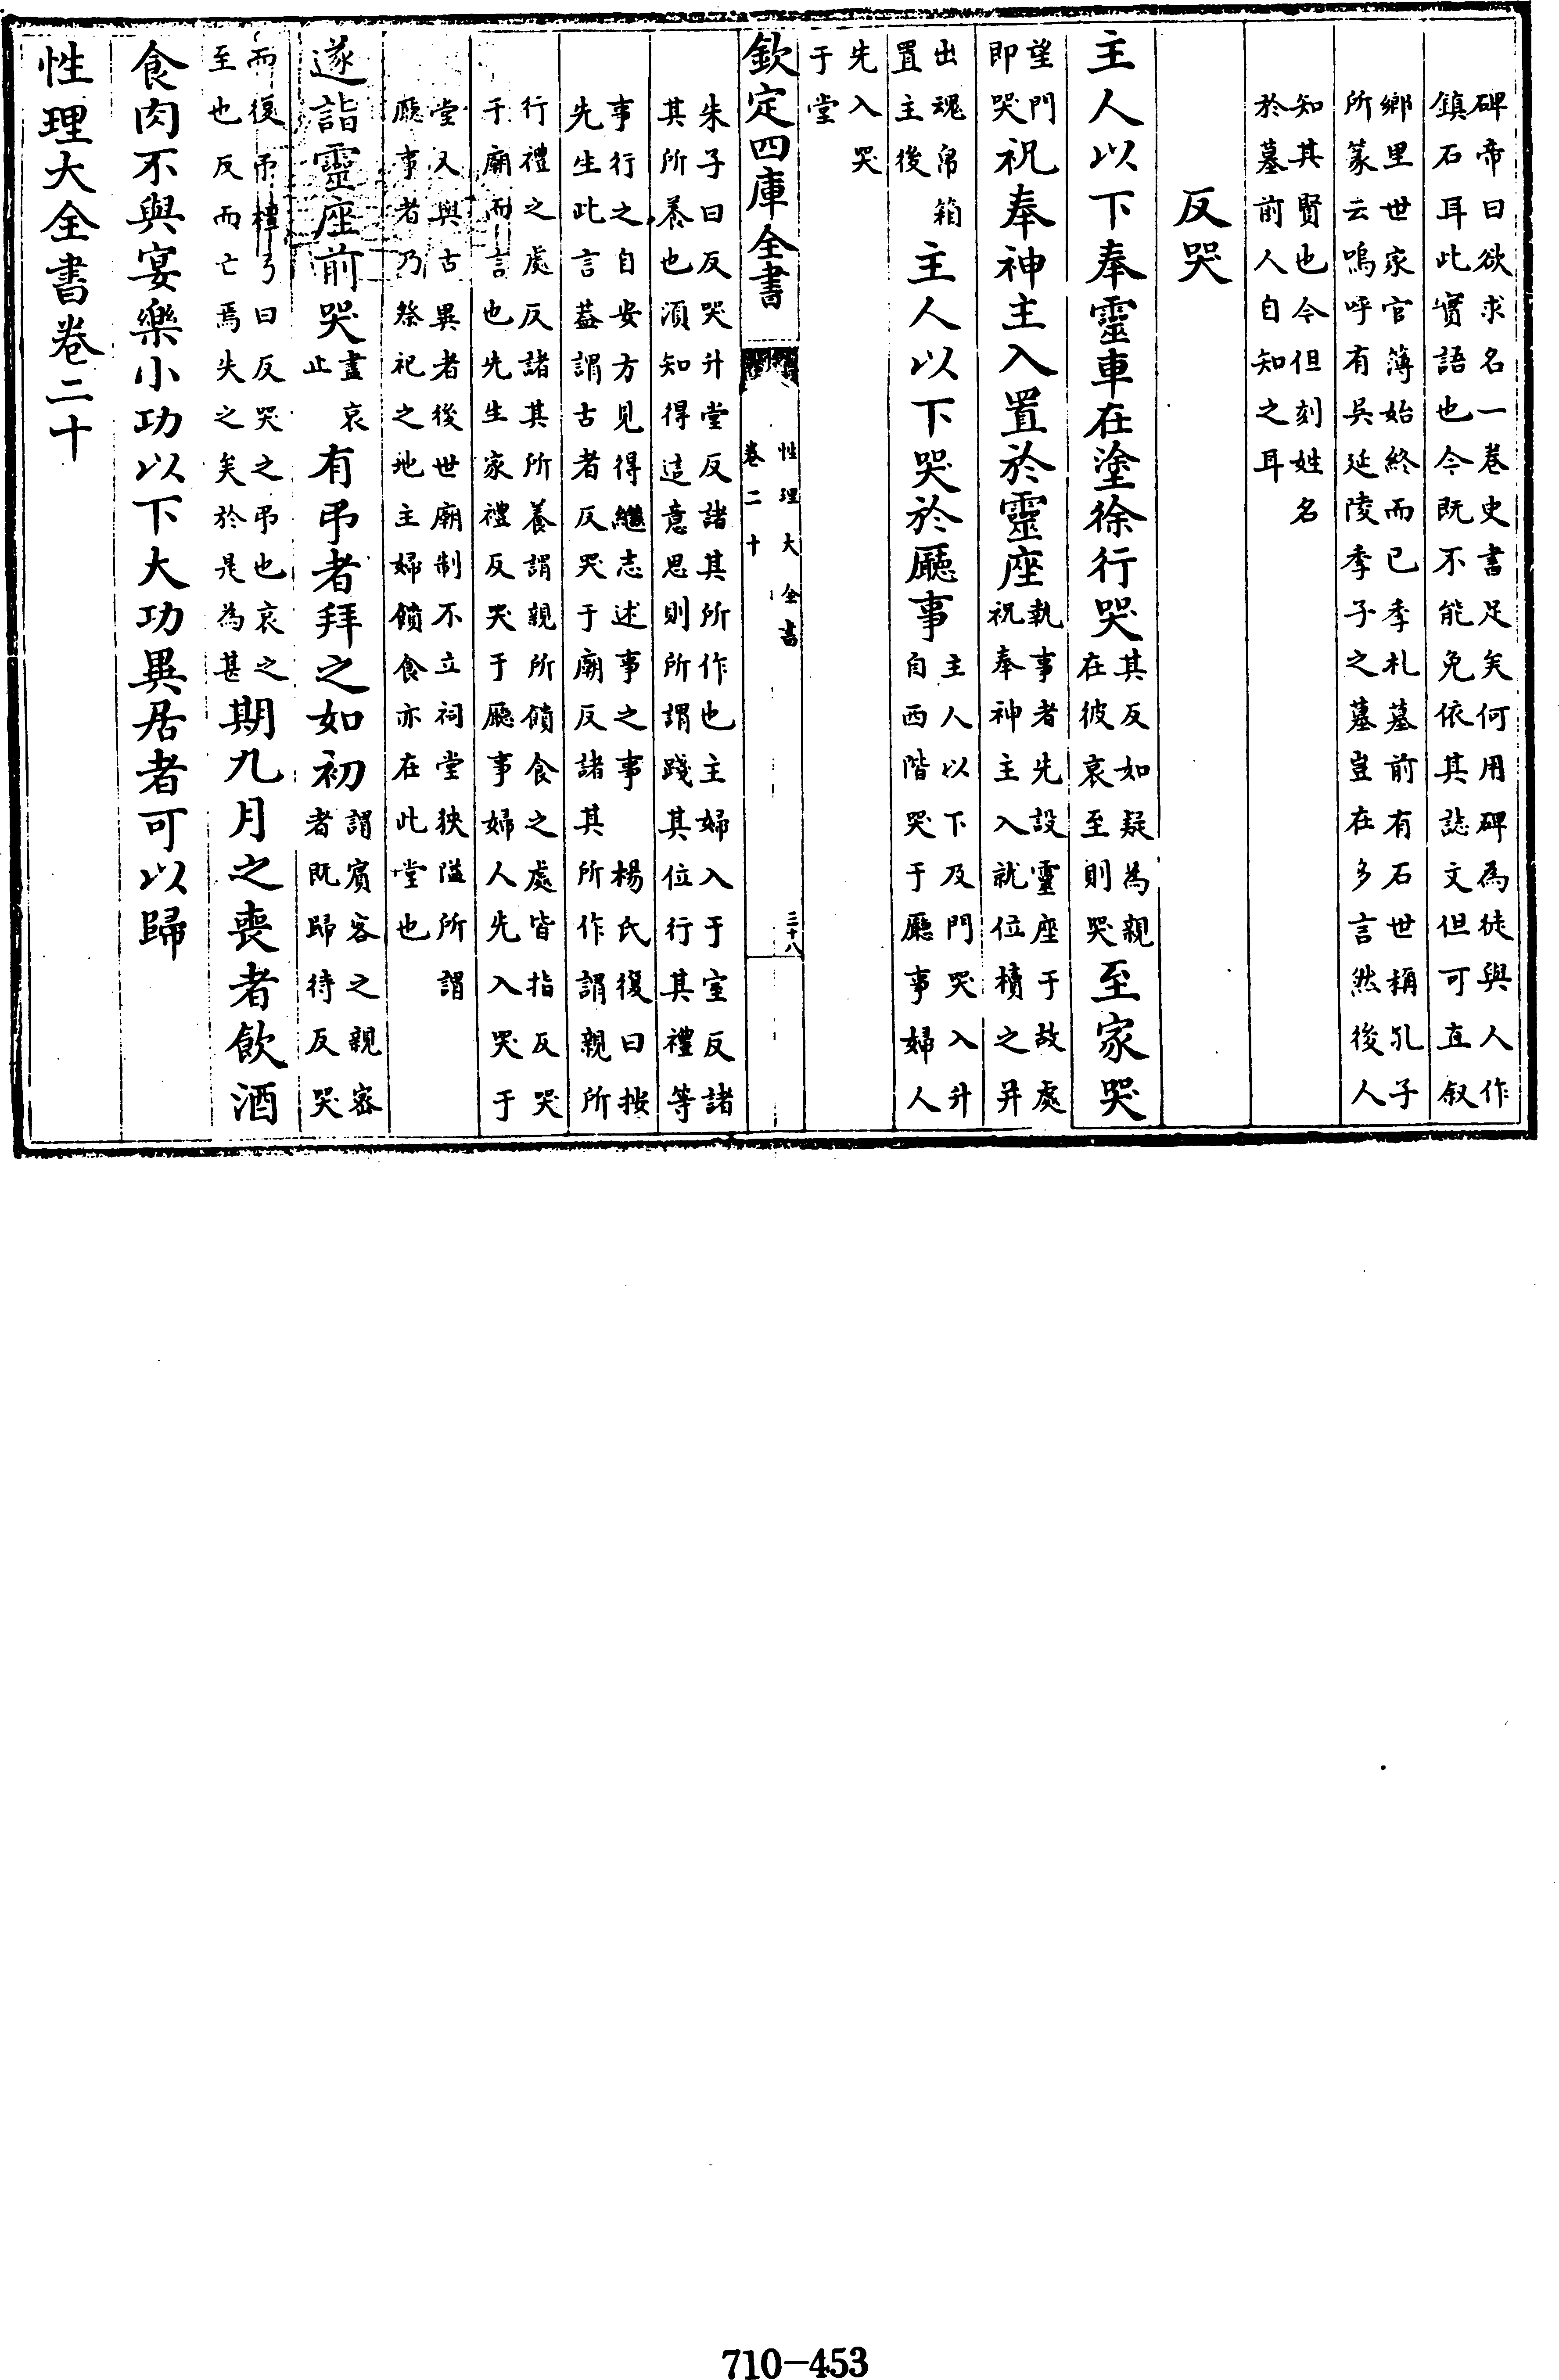 碑帝曰欲求名一卷史書足矣何用碑為徒與人作
鎮石耳此實語也今既不能免依其誌文但可直叙
鄉里世家官簿始終而已季札墓前有石世稱孔子
所篆云嗚呼有吳延陵季子之墓豈在多言然後人
知其賢也今但刻姓名
於墓前人自知之耳
反哭
主人以下奉靈車在塗徐行哭其反如疑為親在彼哀至則哭至家哭
望門即哭祝奉神主入置於靈座執事者先設靈座于故處祝奉神主入就位櫝之并
出魂帛箱置主後主人以下哭於廳事主人以下及門哭入升自西階哭于廳事婦人
先入哭于堂
欽定四庫全書
性理大全書
卷二十
三十八
朱子曰反哭升堂反諸其所作也主婦入于室反諸
其所養也須知得這意思則所謂踐其位行其禮等
事行之自安方見得繼志述事之事 楊氏復曰按
先生此言葢謂古者反哭于廟反諸其所作謂親所
行禮之處反諸其所養謂親所饋食之處皆指反哭
于廟而言也先生家禮反哭于廳事婦人先入哭于
堂又與古異者後世廟制不立祠堂狹隘所謂
廳事者乃祭祀之地主婦饋食亦在此堂也
遂詣靈座前哭盡哀止有弔者拜之如初謂賓客之親密者既歸待反哭
而復弔檀弓曰反哭之弔也哀之至也反而亡焉失之矣於是為甚期九月之喪者飲酒
食肉不與宴樂小功以下大功異居者可以歸
性理大全書卷二十
710-453